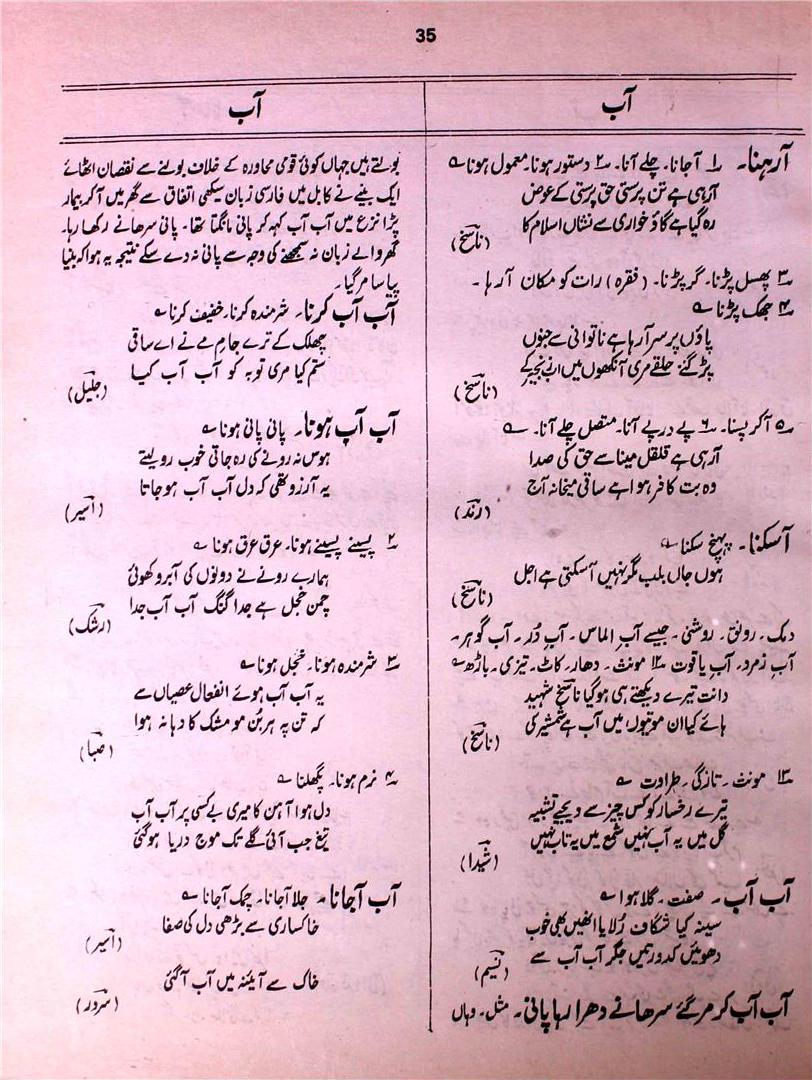 35
آب
آرہنا۔ ۱ آجانا۔ چلے آنا۔ ۲ دستور ہونا۔ معمول ہونا ؎
آرہی ہے تن پرستی حق پرستی کے عوض
رہ گیا ہے گاؤ خواری سے نشاں اسلام کا
(ناسخ)
۳ پھسل پڑنا۔ گر پڑنا۔ (فقرہ) رات کو مکان آرہا۔
۴ جھک پڑنا ؎
پاؤں پر سر آرہا ہے ناتوانی سے جنوں
پڑ گئے حلقے مری آنکھوں میں اب زنجیر کے
(ناسخ)
۵ آکر بسنا۔ ۶ پے درپے آنا۔ متصل چلے آنا۔ ؎
آرہی ہے قلقل مینا سے حق کی صدا
وہ بت کافر ہوا ہے ساقی میخانہ آج
(رند)
آسکنا۔ پہنچ سکنا ؎
ہوں جاں بلب مگر نہیں آسکتی ہے اجل
(ناسخ)
دمک۔ رونق۔ روشنی۔ جیسے آب الماس۔ آب دُر۔ آب گوہر۔
آب زمرد۔ آب یاقوت ۱۲ مونث۔ دھار۔ کاٹ۔ تیزی۔ باڑھ ؎
دانت تیرے دیکھتے ہی ہوگیا ناسخ شہید
ہائے کیا ان موتیوں میں آب ہے شمشیر کی
(ناسخ)
۱۳ مونث۔ تازگی۔ طراوت ؎
تیرے رخسار کو کس چیز سے دیجے تشبیہ
گل میں یہ آب نہیں شمع میں یہ تاب نہیں
(شیدا)
آب آب۔ صفت۔ گلا ہوا ؎
سینہ کیا شگاف رُلایا انھیں بھی خوب
دھوئیں کدورتیں جگر آب آب سے
(نسیم)
آب آب کر مر گئے سرھانے دھرا رہا پانی۔ مثل۔ وہاں
آب
بولتے ہیں جہاں کوئی قومی محاورہ کے خلاف بولنے سے نقصان اٹھائے
ایک بنیے نے کابل میں فارسی زبان سیکھی اتفاق سے گھر میں آکر بیمار
پڑا نزع میں آب آب کہہ کر پانی مانگتا تھا۔ پانی سرھانے رکھا رہا۔
گھر والے زبان نہ سمجھنے کی وجہ سے پانی نہ دے سکے نتیجہ یہ ہوا کہ بنیا
پیاسا مر گیا۔
آب آب کرنا۔ شرمندہ کرنا۔ خفیف کرنا ؎
چھلک کے ترے جام مے نے اے ساقی
ستم کیا مری توبہ کو آب آب کیا
(جلیل)
آب آب ہونا۔ پانی پانی ہونا ؎
ہوس نہ رونے کی رہ جاتی خوب رو لیتے
یہ آرزو تھی کہ دل آب آب ہوجاتا
(اسیر)
۲ پسینے پسینے ہونا۔ عرق عرق ہونا ؎
ہمارے رونے نے دونوں کی آبرو کھوئی
چمن خجل ہے جدا گنگ آب آب جدا
(رشک)
۳ شرمندہ ہونا۔ خجل ہونا ؎
یہ آب آب ہوئے انفعال عصیاں سے
کہ تن پہ ہر بُن مو مشک کا دہانہ ہوا
(صبا)
۴ نرم ہونا۔ پگھلنا ؎
دل ہوا آہن کا میری بےکسی پر آب آب
تیغ جب آئی گلے تک موج دریا ہوگئی
آب آجانا۔ جلا آجانا۔ چمک آجانا ؎
خاکساری سے بڑھی دل کی صفا
(اسیر)
خاک سے آئینہ میں آب آگئی
(سرور)